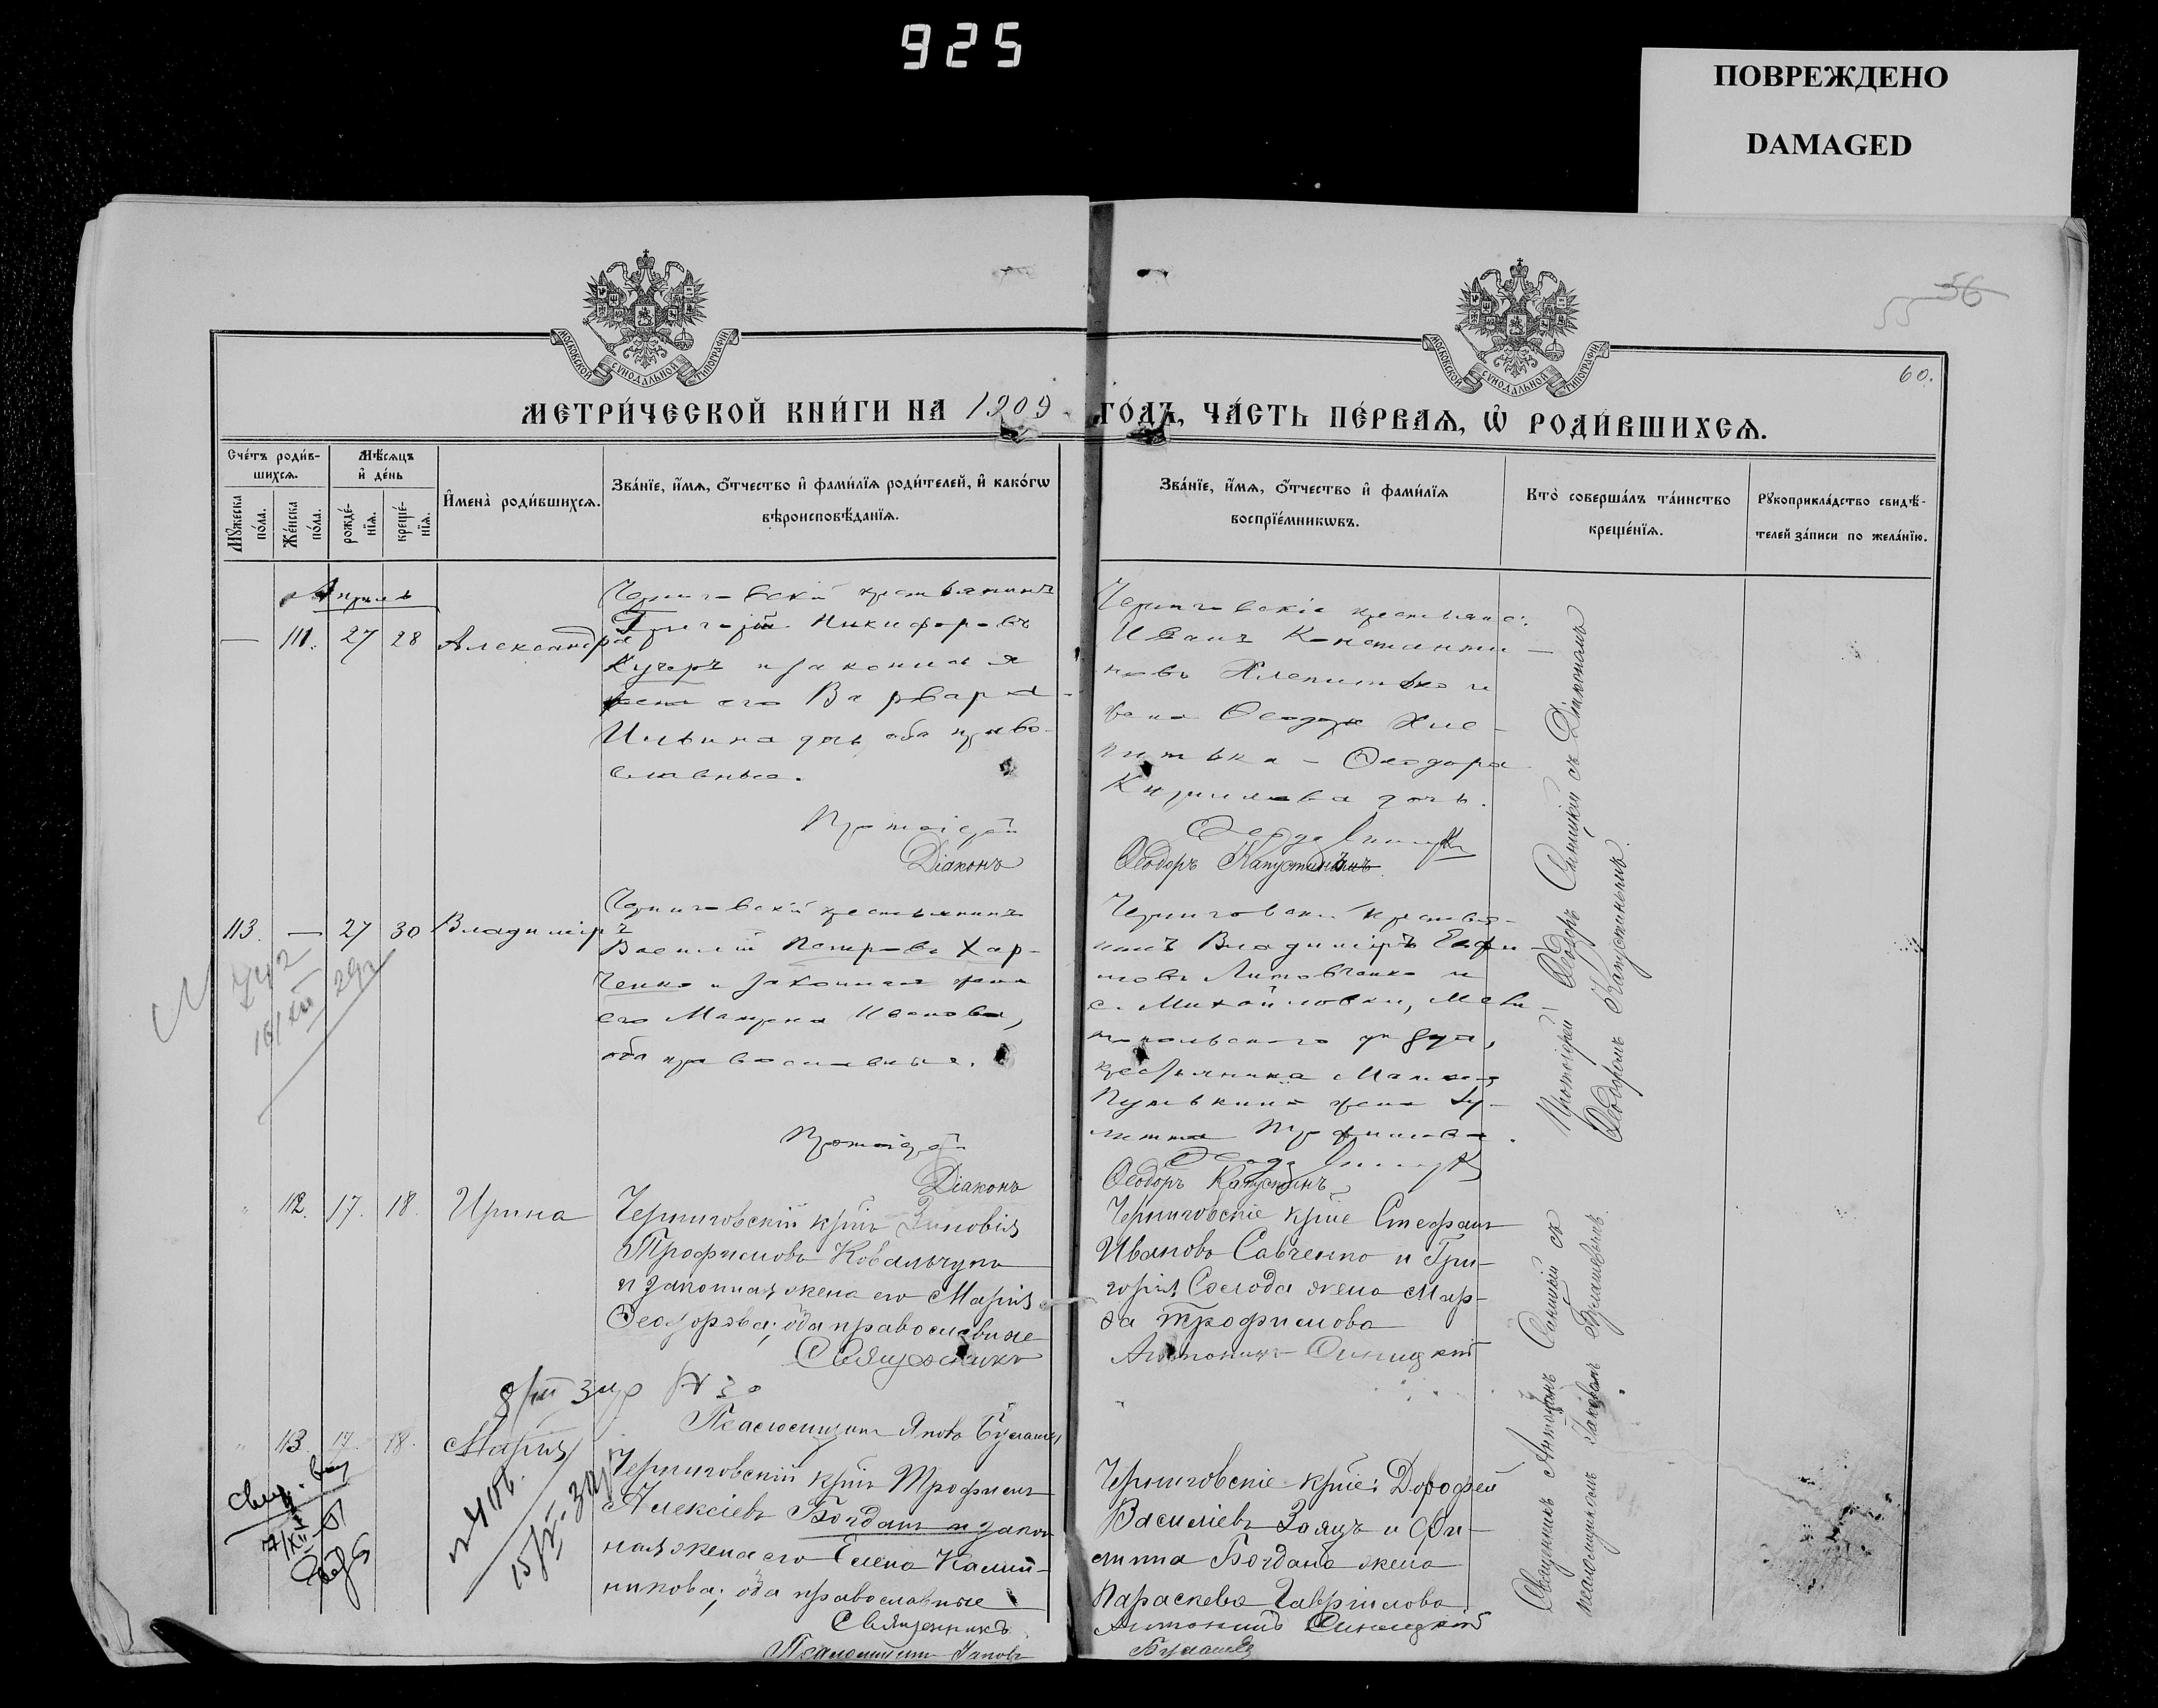 925
ПОВРЕЖДЕНО
DAMAGED
55 56
60.
МОСКОВСКОЙ СѴНОДАЛЬНОЙ ТИПОГРАФІИ
МОСКОВСКОЙ СѴНОДАЛЬНОЙ ТИПОГРАФІИ
МЕТРИ́ЧЕСКОЙ КНИ́ГИ НА 1909 ГО́ДЪ, ЧА́СТЬ ПЕ́РВАѦ, Ѡ҆ РОДИ́ВШИХСѦ.
Сче́тъ роди́в-
шихсѧ.
Мꙋ́жеска по́ла.
Же́нска по́ла.
Мѣ́сѧцъ
и҆ де́нь
рожде́-нїѧ.
креще́-нїѧ.
И҆мена̀ роди́вшихсѧ.
Зва́нїе, и҆́мѧ, ѻ҆́тчество и҆ фами́лїѧ роди́телей, и҆ како́гѡ
вѣроисповѣ́данїѧ.
Зва́нїе, и҆́мѧ, ѻ҆́тчество и҆ фами́лїѧ
воспрїе́мникѡвъ.
Кто̀ соверша́лъ та́инство
креще́нїѧ.
Рꙋкоприкла́дство свидѣ́-
телей за́писи по жела́нїю.
Апрѣль
— 111. 27 28 Александра
Черниговскій крестьянинъ
Григорій Никифоровъ
Кучеръ и законная
жена его Варвара
Ильина дочь, оба право-
славные.
Черниговскіе крестьяне:
Иванъ Константи-
новъ Хлепитько и
жена
питька – Ѳеодора
Кирилова дочь.
Протоіерей
Діаконъ Ѳеодоръ Капустинъ
Протоіерей Ѳеодоръ Синицкій съ Діакономъ
Ѳеодоромъ Капустинымъ.
113. — 27 30 Владиміръ
Черниговскій крестьянинъ
Василій Петровъ Хар-
ченко и законная жена
его Матрена Иванова,
оба православные.
Черниговскій крестья-
нинъ Владиміръ Ефи-
мовъ Литовченко и
с. Михайловки, Мели-
топольского уѣзда,
крестьянина
жена
Трофимова.
Протоіерей
Діаконъ Ѳеодоръ Капустинъ
112. 17. 18. Ирина
Черниговскій кр-нъ Зиновій
Трофимовъ Ковальчукъ
и законная жена его Марія
Ѳеодорова; оба православные
Черниговскіе кр-не Стефанъ
Ивановъ Савченко и Гри-
горія Солода жена Мар-
ѳа Трофимова
Священникъ Антонинъ Синицкій
Псаломщикъ Яковъ Булашевъ
Священникъ Антонинъ Синицкій съ
псаломщикомъ Іаковомъ Булашевымъ.
113. 17. 18. Марія
Черниговскій кр-нъ Трофимъ
Алексіевъ Богданъ и закон-
ная жена его Елена Калин-
никова; оба православные
Черниговскіе кр-не: Дорофей
Василіевъ Заяцъ и Фи-
липпа Богдана жена
Параскева Гавріилова
Священникъ Антонинъ Синицкій
Псаломщикъ Іаковъ Булашевъ